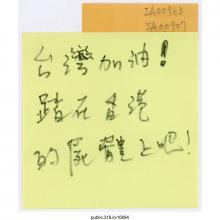 IA00963
IA00907
台灣加油！
踏在香港
的屍體上吧！
public.318.io/10894